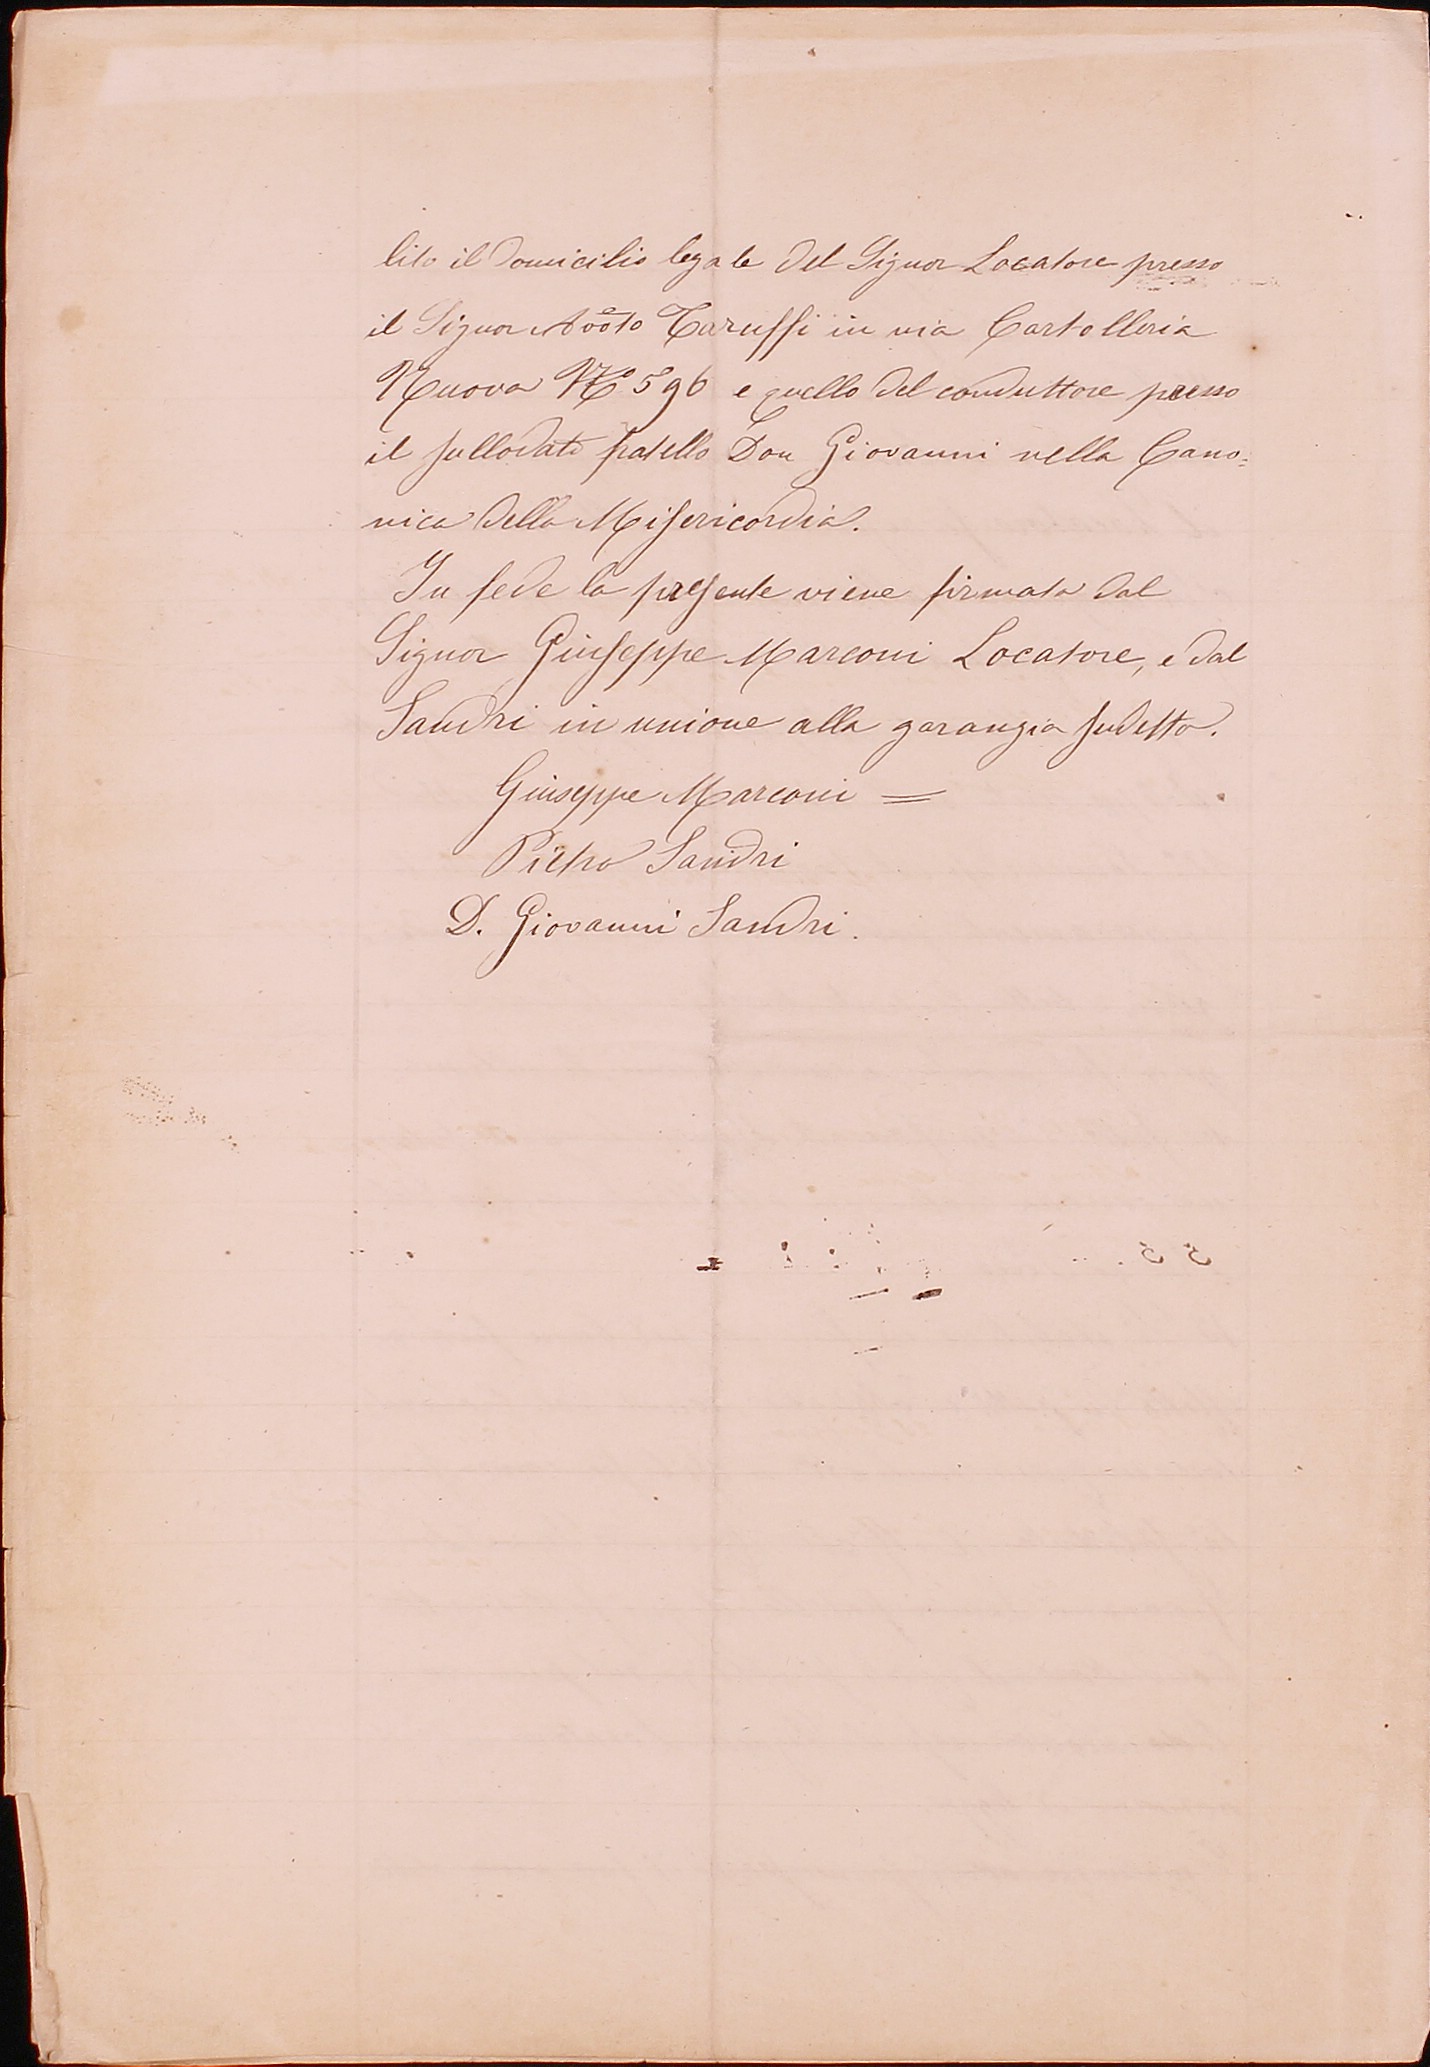 lito il domicilio legale del Signor Locatore presso
il Signor Avvto Taruffi in via Cartolleria
Nuova N.° 596 e quello del conduttore presso
il sullodato fratello Don Giovanni nella Cano=
nica della Misericordia.
In fede la presente viene firmata dal
Signor Giuseppe Marconi Locatore, e dal
Sandri in unione alla garanzia sudetta.
Giuseppe Marconi =
Pietro Sandri
D. Giovanni Sandri.